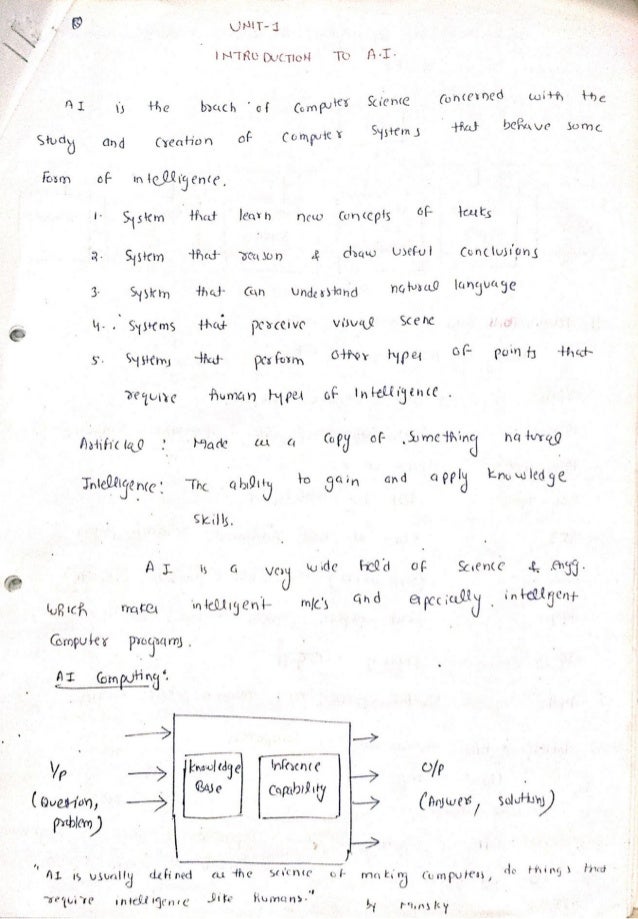 UNIT-1
INTRODUCTION TO A.I.
AI is the brach of Computer Science concerned with the
Study and Creation of Computer Systems that behave some
Form of intelligence.
1. System that learn new concepts of tasks
2. System that reason & draw useful conclusions
3. System that can understand natural language
4. Systems that perceive visual scene
5. Systems that perform other types of points that
require human types of Intelligence.
Artificial : Made as a copy of something natural
Intelligence: The ability to gain and apply knowledge
skills.
AI is a very wide field of Science & Engg.
which makes intelligent m/c's and especially intellgent
Computer programs.
AI Computing:
I/P
(Question,
problem)
knowledge
Base
Inference
Capability
O/P
(Answers, solutions)
"AI is usually defined as the science of making computers, do things that
require intelligence like humans."
by Minsky